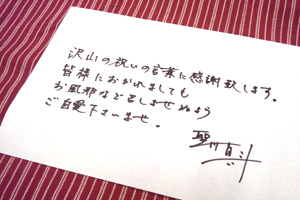 沢山の祝いの言葉に感謝致します。
皆様におかれましても
お風邪など召しませぬよう
ご自愛下さいませ。
聖川真斗